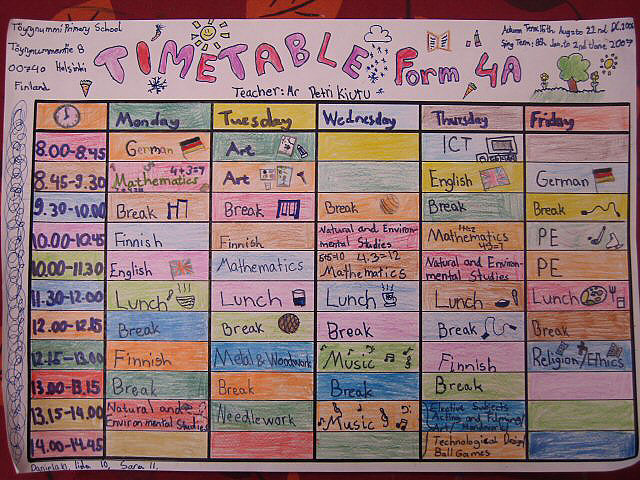 Töyrynummi Primary School
Töyrynummentie 8
00740 Helsinki
Finland
TIMETABLE Form 4A
Autumn Term: 15th Aug to 22nd
Spring Term: 8th Jan to 2nd June 2007
Teacher: Mr Petri
Monday Tuesday Wednesday Thursday Friday
8.00-8.45 German Art ICT
8.45-9.30 Mathematics 4+3=7 Art English German
9.30-10.00 Break Break Break Break Break
10.00-10.45 Finnish Finnish Natural and Environmental Studies Mathematics PE
10.00-11.30 English Mathematics 4.3=12 Mathematics Natural and Environmental Studies PE
11.30-12.00 Lunch Lunch Lunch Lunch Lunch
12.00-12.15 Break Break Break Break Break
12.15-13.00 Finnish Metal & Woodwork Music Finnish Religion/Ethics
13.00-13.15 Break Break Break Break
13.15-14.00 Natural and Environmental Studies Needlework Music Elective Subjects Acting and
14.00-14.45 Technological Design/ Ball Games
Iida 10, Sara 11,